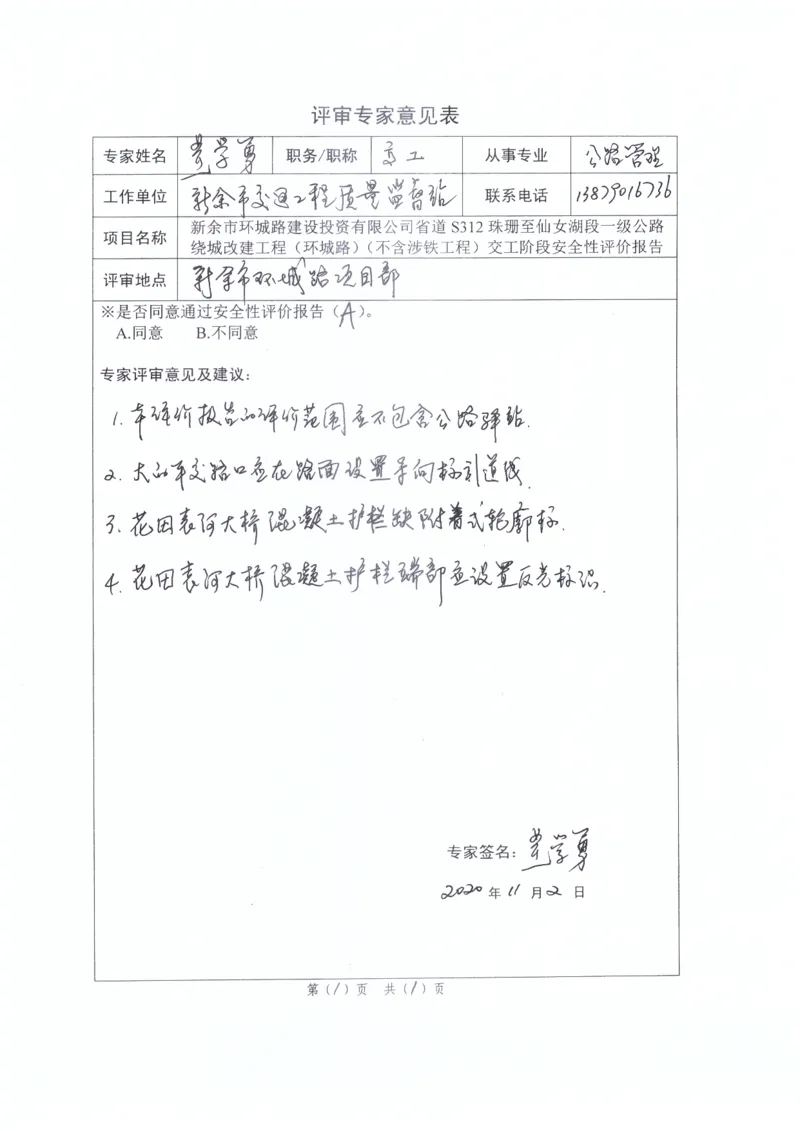 评审专家意见表
专家姓名 学勇 职务/职称 高工 从事专业 公路管理
工作单位 新余市交通工程质量监督站 联系电话 13879016736
项目名称 新余市环城路建设投资有限公司省道 S312 珠珊至仙女湖段一级公路
绕城改建工程（环城路）（不含涉铁工程）交工阶段安全性评价报告
评审地点 新余市环城路项目部
※是否同意通过安全性评价报告（A）。
A.同意 B.不同意
专家评审意见及建议：
1. 本评价报告的评价范围应不包含公路驿站.
2. 大的平交路口应在路面设置导向标引道线.
3. 花田袁河大桥混凝土护栏缺附着式轮廓标.
4. 花田袁河大桥混凝土护栏端部应设置反光标识.
专家签名： 学勇
2020 年 11 月 2 日
第（1）页 共（1）页